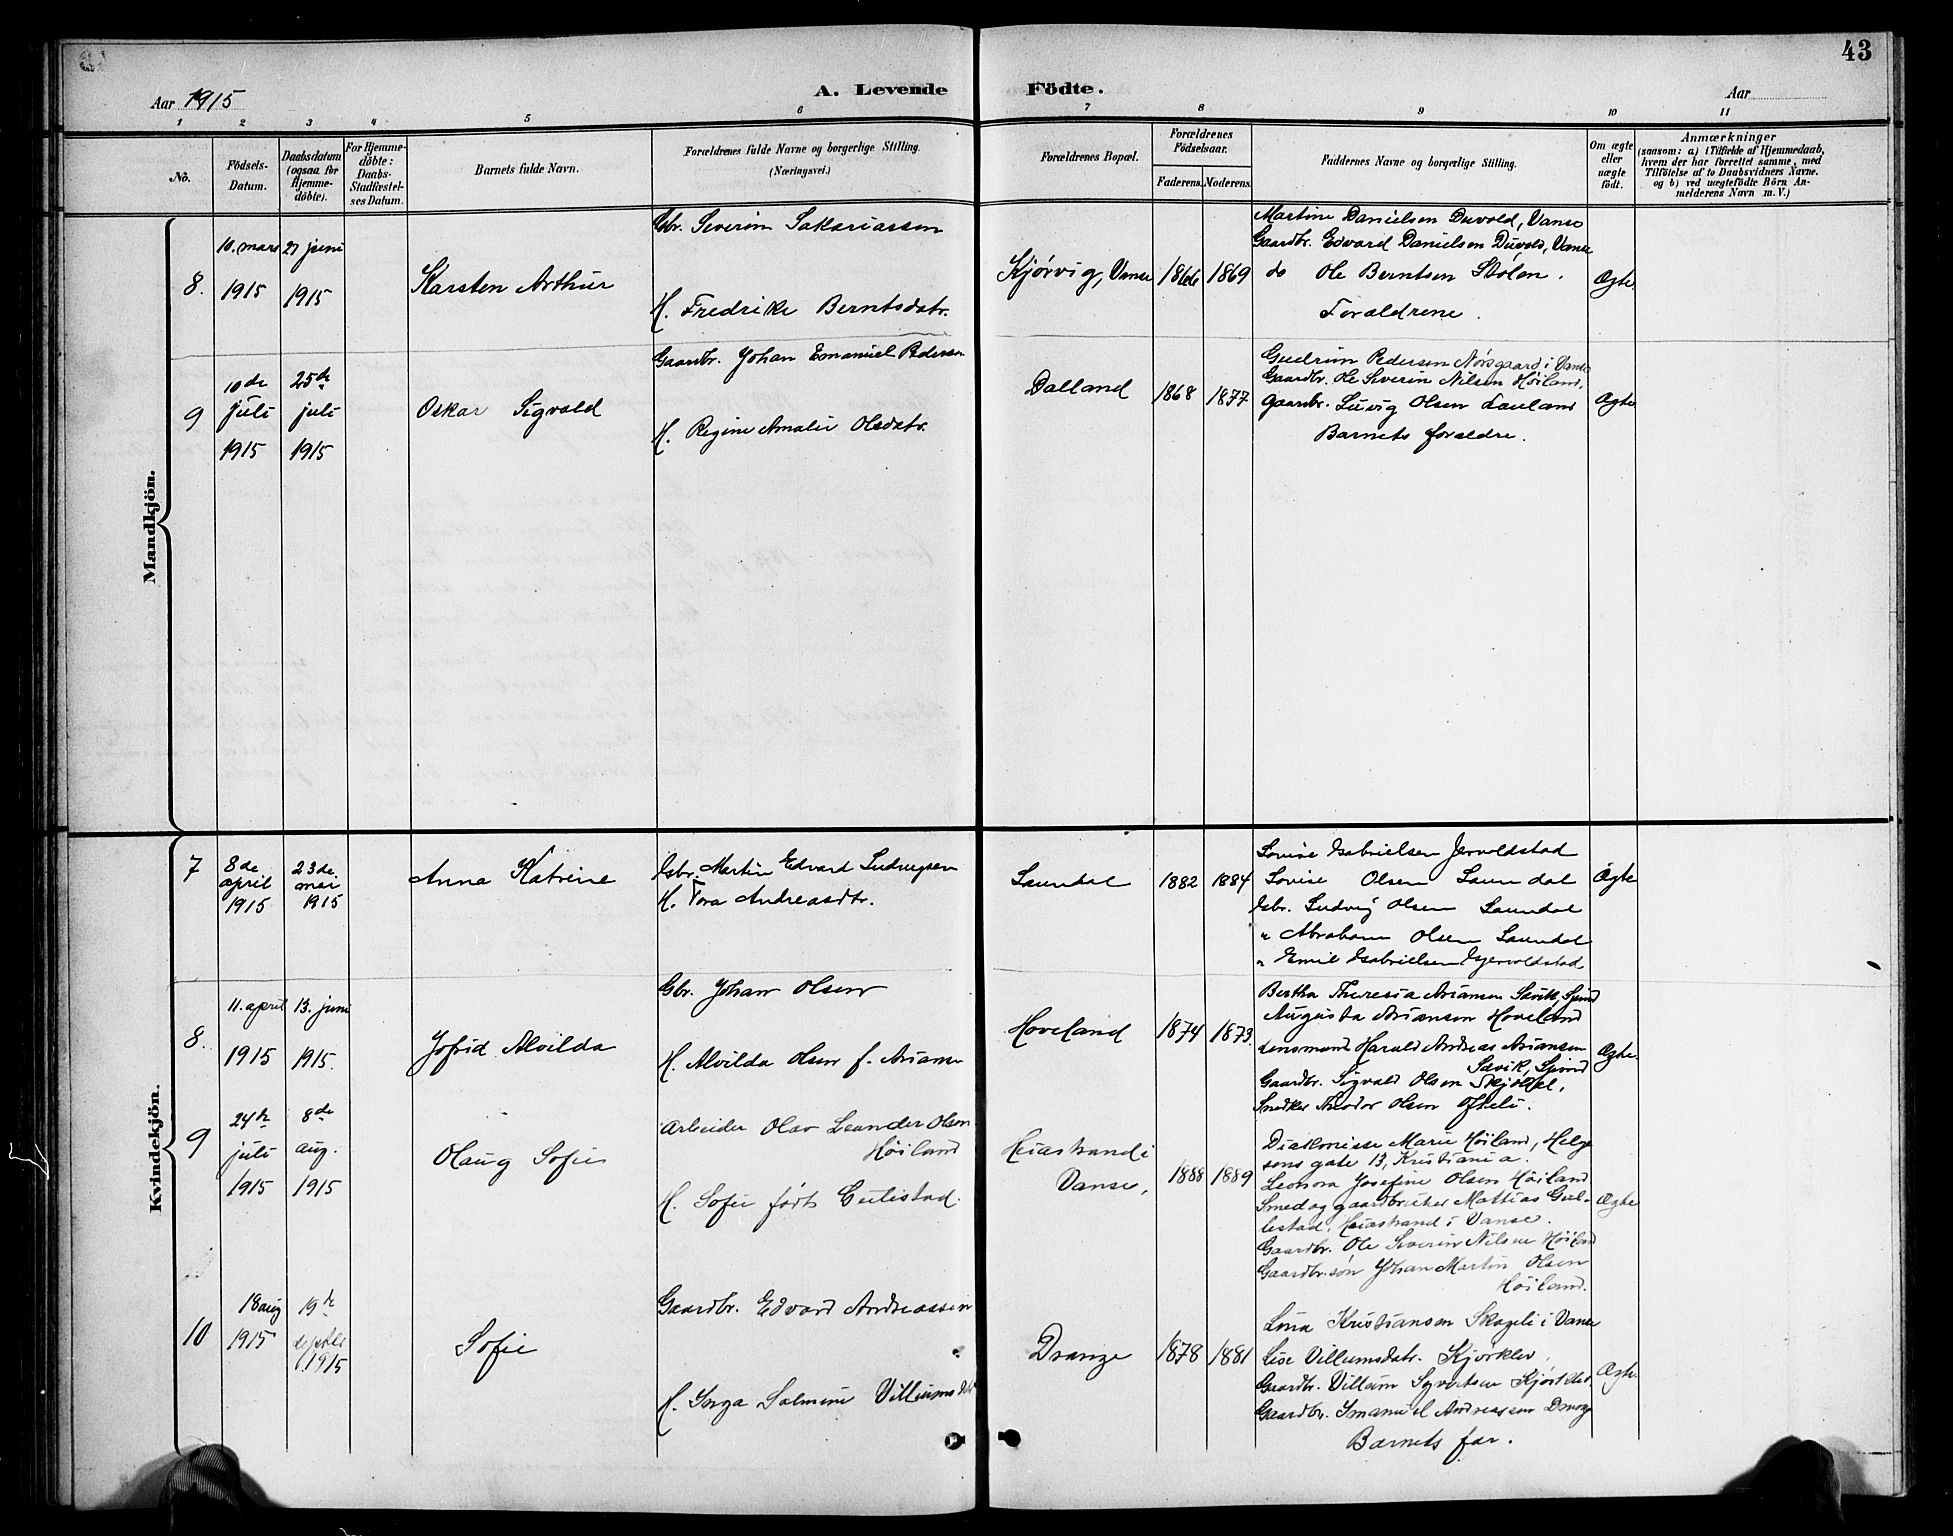 43
Aar 1915
A. Levende Födte.
Aar
1 2 3 4 5 6 7 8 9 10 11
No.
Födsels-
Datum.
Daabsdatum
(ogsaa for
Hjemme-
döbte).
For Hjemme-
döbte:
Daabs-
Stadfæstel-
ses Datum.
Barnets fulde Navn.
Forældrenes fulde Navne og borgerlige Stilling.
(Næringsvei.)
Forældrenes Bopæl.
Forældrenes
Födselsaar.
Faderens. Moderens.
Faddernes Navne og borgerlige Stilling.
Om ægte
eller
uægte
födt.
Anmærkninger
(saasom: a) i Tilfælde af Hjemmedaab,
hvem der har forrettet samme, med
Tilföielse af to Daabsvidners Navne.
og b) ved uægtefödte Börn An-
melderens Navn m. V.)
Mandkjön.
8.
10. mars
1915
27 juni
1915
Karsten Arthur
Gbr. Severin Sakariassen
H. Fredrike Berntsdatr.
Kjørvig, Vanse
1866
1869
Martine Danielsen Duvold, Vanse
Gaardbr. Edvard Danielsen Duvold, Vanse
do Ole Berntsen Stolen.
Forældrene.
Ægte.
9
10de
juli
1915
25de
juli
1915
Oskar Sigvald
Gaardbr. Johan Emanuel Pedersen
H. Regine Amalie Olsdatr.
Dalland
1868
1877
Gudrun Pedersen Nørsgaard i Vanse
Gaardbr. Ole Severin Nilsen Høiland,
Gaardbr. Luvig Olsen Lauland
Barnets forældre.
Ægte
Kvindekjön.
7
8de
april
1915
23de
mai
1915
Anna Katrine
Gbr. Martin Edvard Ludvigsen
H. Tora Andreasdtr.
Laundal
1882
1884
Lovise Gabrielsen Jervoldstad
Lovise Olsen Laundal
Gbr. Ludvig Olsen Laundal
" Abraham Olsen Laundal
" Emil Gabrielsen Gjervoldstad
Ægte
8.
11. april
1915
13. juni
1915.
Jofrid Alvilda
Gbr. Johan Olsen
H. Alvilda Olsen f. Arianse
Hoveland
1874
1873.
Bertha Theresia Ariansen Sævik, Spind
Augusta Ariansen Hoveland
Lensmand Harald Andreas Ariansen
Sævik, Spind
Gaardbr. Sigvald Olsen
Snedker Theodor Olsen Ofteli.
Ægte.
9
24de
juli
1915
8de
aug.
1915
Olaug Sofie
Arbeider Olav Leander Olsen
Høiland
H. Sofie født Gulestad.
Huastrand i
Vanse,
1888
1889
Diakonisse Marie Høiland, Helge
sens gate 13, Kristiania.
Leonora Josefine Olsen Høiland
Smed og gaardbruker Mattias Gul-
lestad, Huastrand i Vanse.
Gaardbr. Ole Severin Nilsen Høiland
Gaardbr.søn Johan Martin Olsen
Høiland.
Ægte
10
18 aug
1915
19de
septbr
1915
Sofie
Gaardbr. Edvard Andreassen
H. Inga Salmine Villiumsdtr
Drange
1878
1881
Lina Kristiansen Skageli i Vanse
Lise Villumsdatr. Kjørklev
Gaardbr. Villum Syvertsen Kjørklev.
Gaardbr. Imanuel Andreassen Drange
Barnets far.
Ægte.